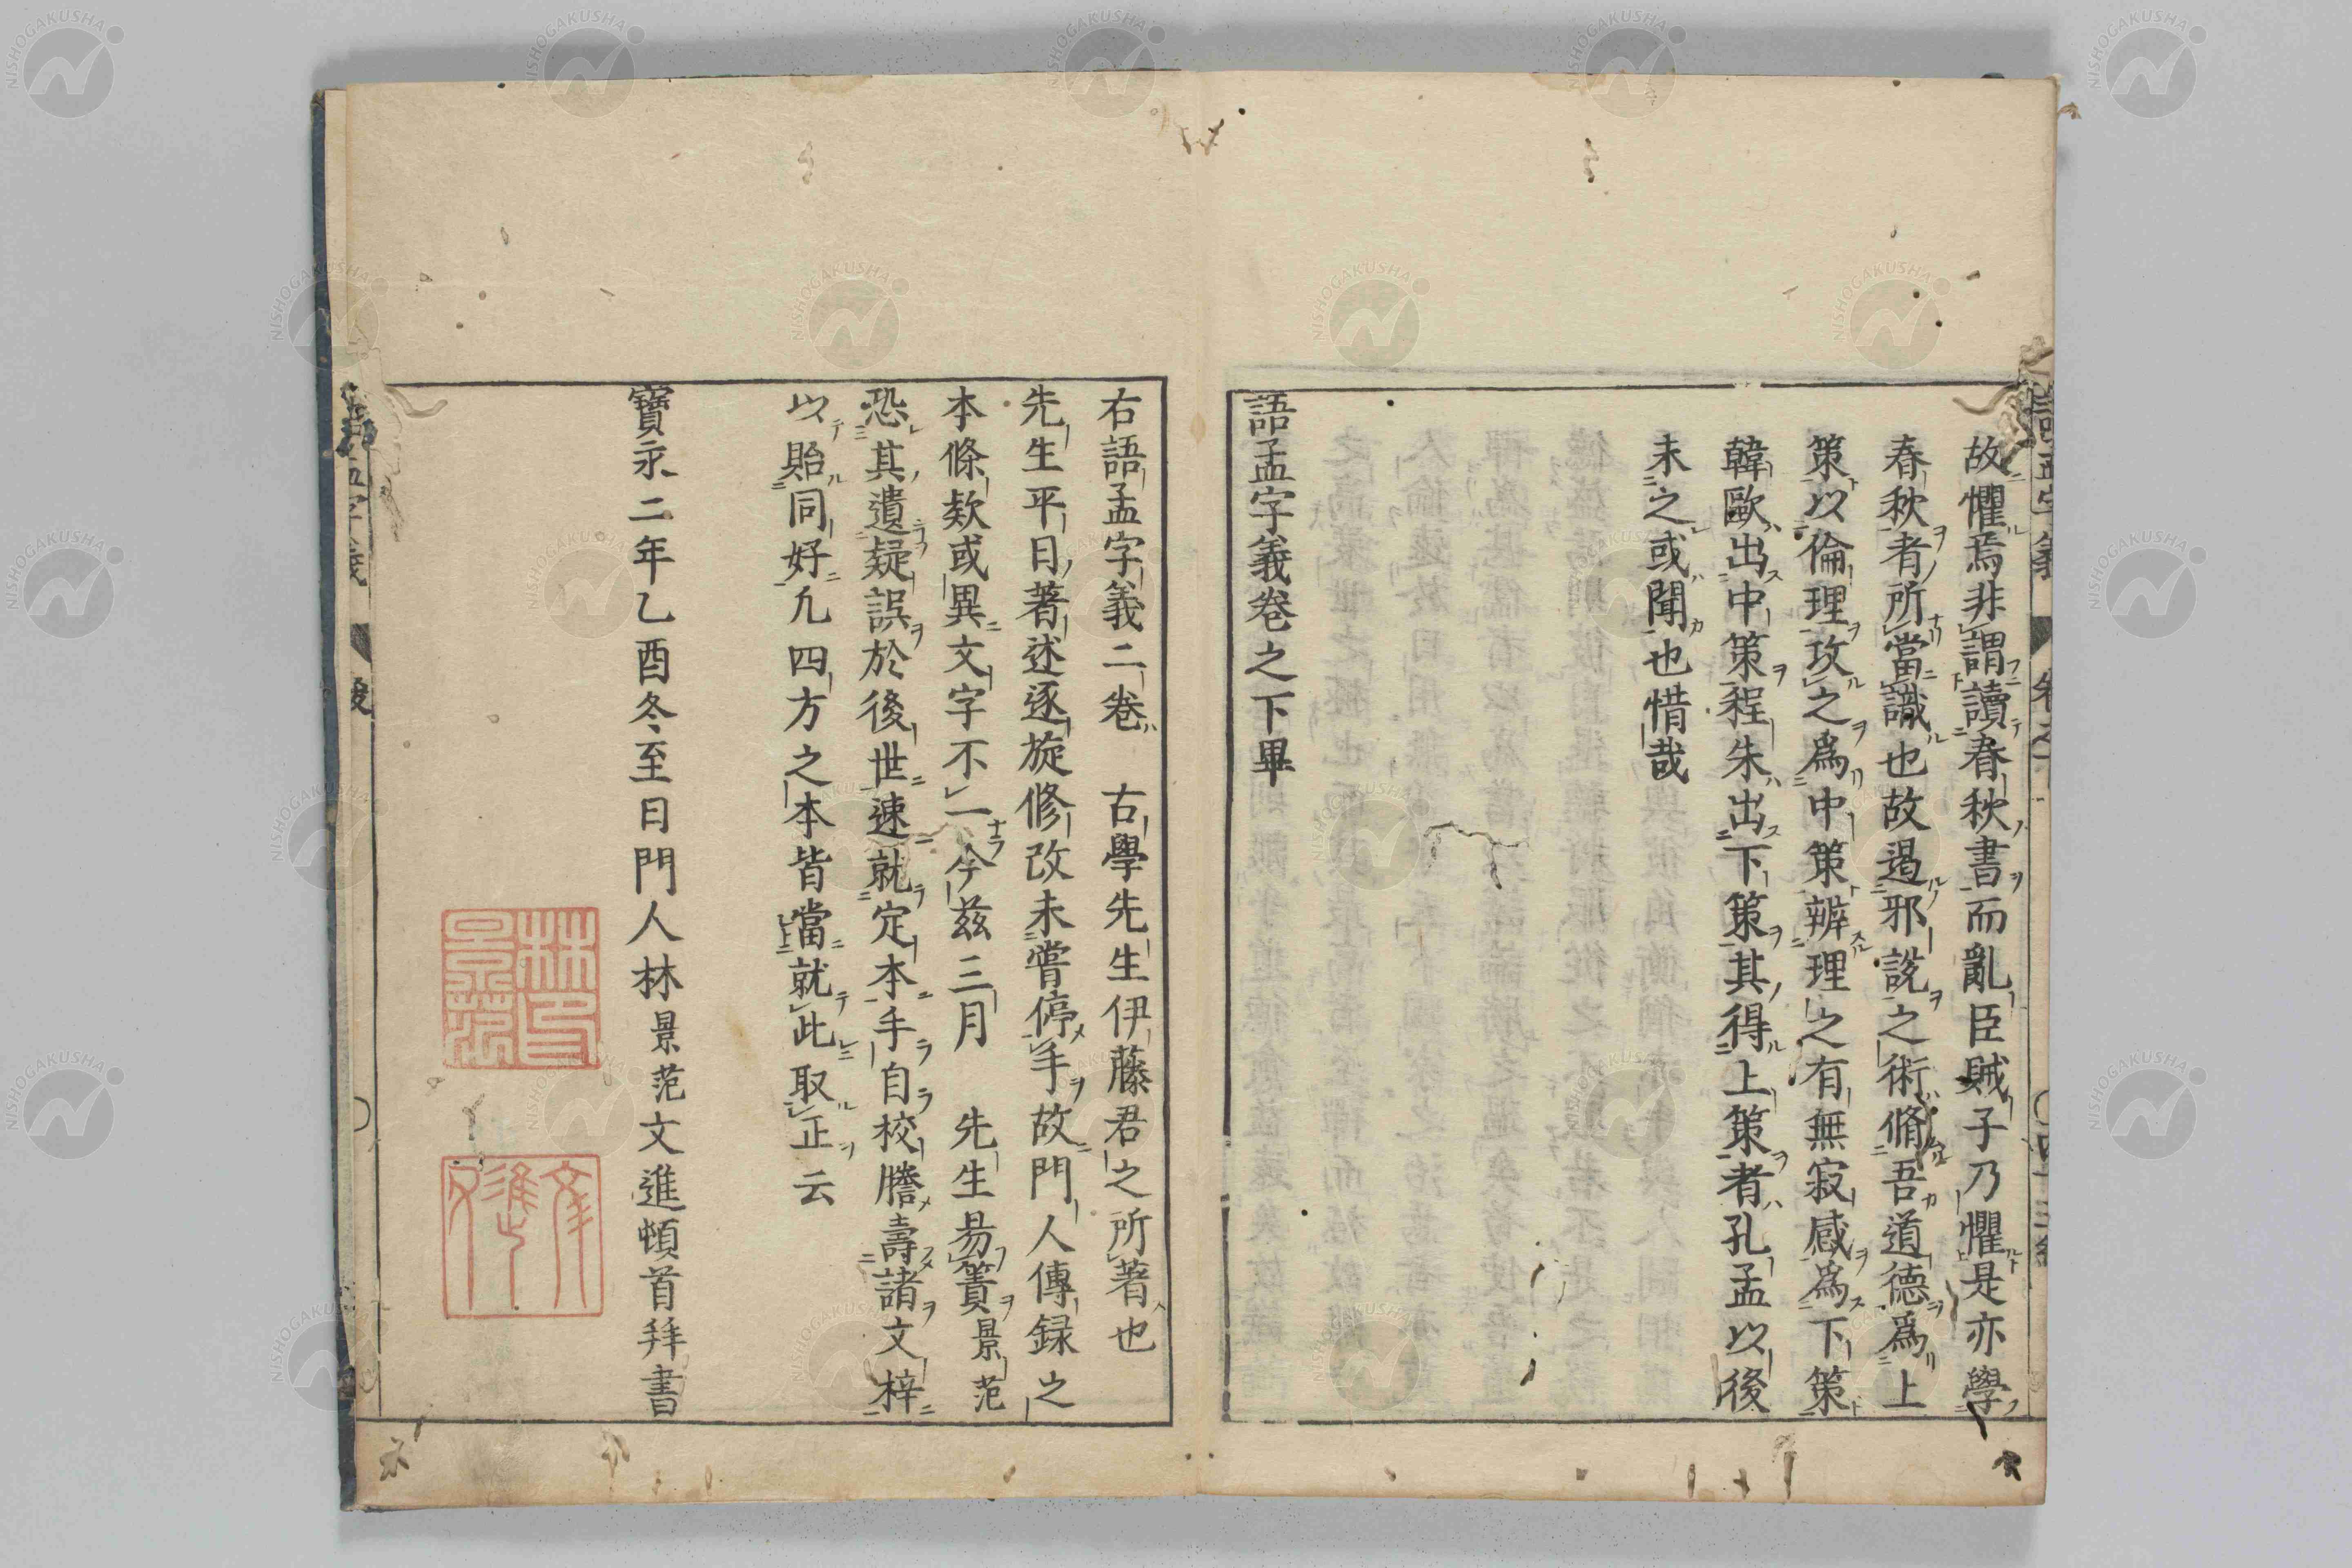 故懼焉非謂讀春秋書而亂臣賊子乃懼是亦學
春秋者所當識也故遏邪説之術脩吾道德爲上
策以倫理攻之爲中策辨理之有無寂感爲下策
韓歐出中策程朱出下策其得上策者孔孟以後
未之或聞也惜哉
語孟字義卷之下畢
右語孟字義二卷 古學先生伊藤君之所著也
先生平日著述逐旋修改未嘗停手故門人傳録之
本條欵或異文字不一今茲三月 先生易簀景范
恐其遺疑誤於後世速就定本手自校謄壽諸文梓
以貽同好凢四方之本皆當就此取正云
寳永二年乙酉冬至日門人林景范文進頓首拜書
林氏景范
文進
NISHOGAKUSHA